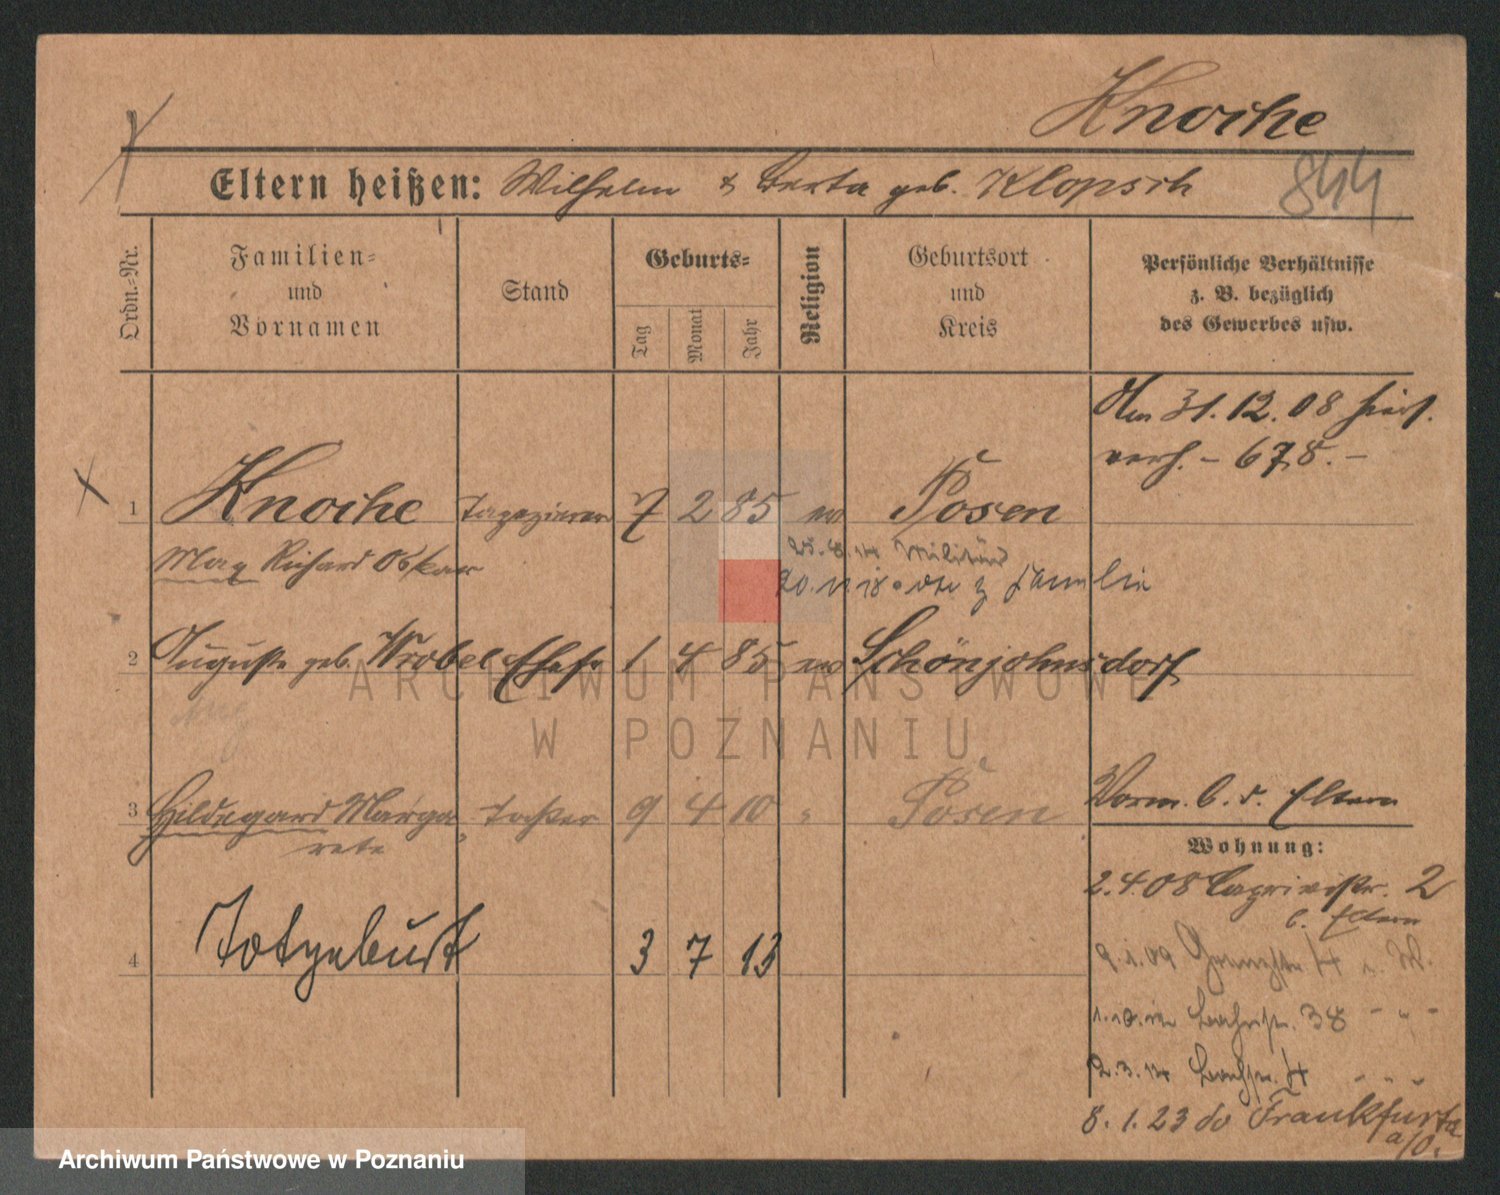 Knoche
844
Eltern heißen: Wilhelm & Berta geb. Klopsch
Ordn.-Nr.
Familien-
und
Vornamen
Stand
Geburts-
Tag
Monat
Jahr
Religion
Geburtsort
und
Kreis
Persönliche Verhältnisse
z. B. bezüglich
des Gewerbes usw.
Am 31.12.08 hier
verh. - 678. -
1 Knoche Tapezierer 7 2 85 ev Posen
Max Richard Oskar
25.8.14 Militär
20.11.18 z Familie
2 Auguste geb. Wrobel Ehefr 1 4 85 ev Schönjohnsdorf
3 Hildegard Marga Tochter 9 4 10 " Posen
rete
Vorm. b. d. Eltern
Wohnung:
2.4.08 2
b. Eltern
4 Totgeburt 3 7 13
9.1.09 4
38 " " "
2.3.14 4 " " "
8.1.23 do Frankfurt
a/O.
ARCHIWUM PAŃSTWOWE
W POZNANIU
Archiwum Państwowe w Poznaniu